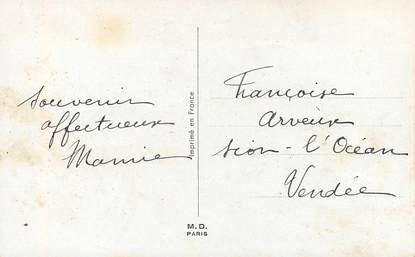 Souvenir
affectueux
Mamie
Imprimé en France
M.D.
PARIS
Françoise
Arveux
Sion-l'Océan
Vendée